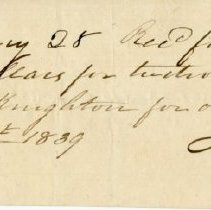 28 Recd f
llars for tuitio
Knighton for
1839